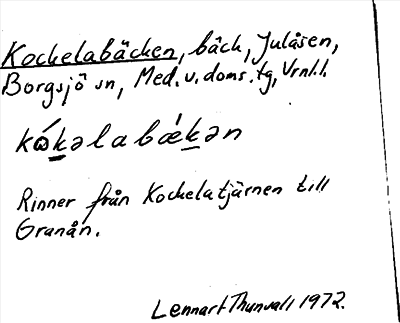 Kockelabäcken, bäck, Julåsen,
Borgsjö sn, Med. v. doms. tg, Vrnl.l.
kɷ́k̲əlabǽk̲ən
Rinner från Kockelatjärnen till
Granån.
Lennart Thunvall 1972.